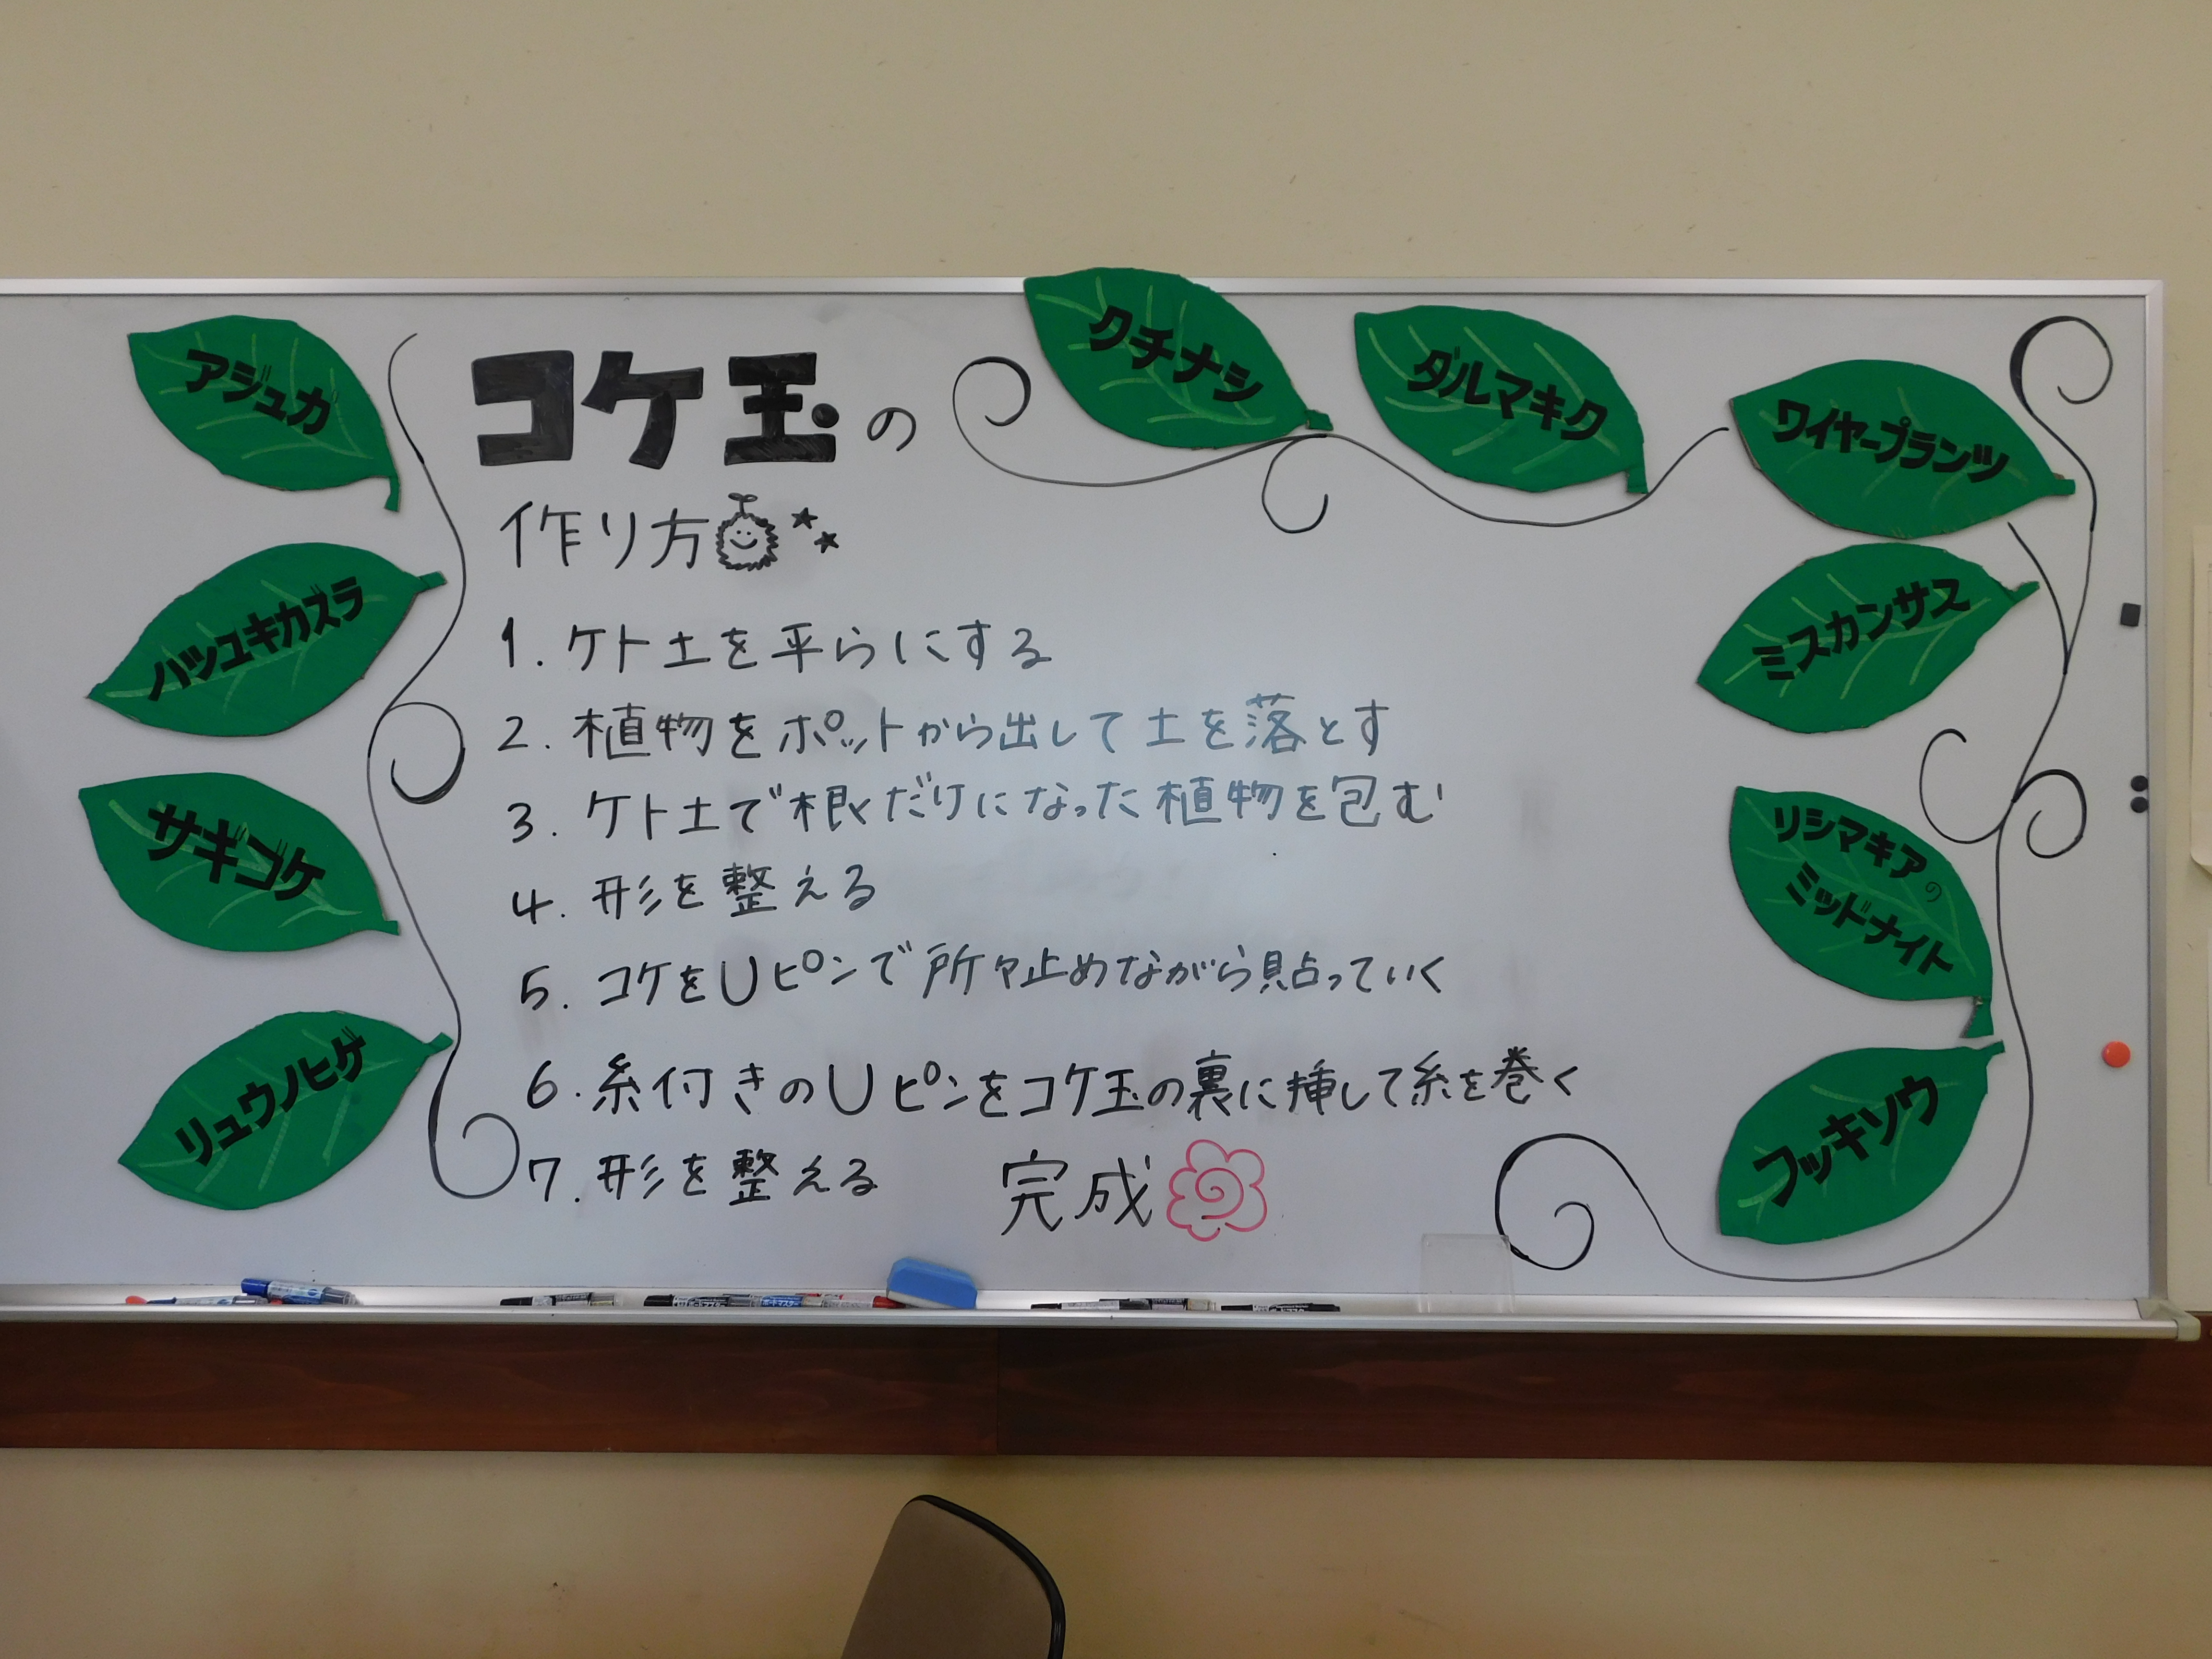 コケ玉の
作り方
1. ケト土を平らにする
2. 植物をポットから出して土を落とす
3. ケト土で根だけになった植物を包む
4. 形を整える
5. コケをUピンで所々止めながら貼っていく
6. 糸付きのUピンをコケ玉の裏に挿して糸を巻く
7. 形を整える 完成
アジュガ
ハツユキカズラ
サギゴケ
リュウノヒゲ
クチナシ
ダルマキク
ワイヤープランツ
ミスカンサス
リシマキアの
ミッドナイト
フッキソウ